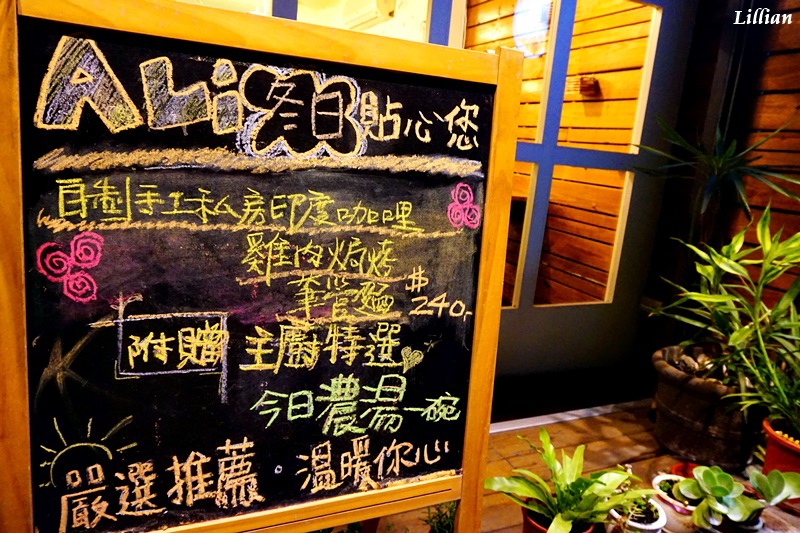 Lillian
ALi 冬日貼心您
自制手工私房印度咖哩
雞肉焗烤
筆管麵 $240.
附贈 主廚特選
今日濃湯一碗
嚴選推薦。溫暖你心